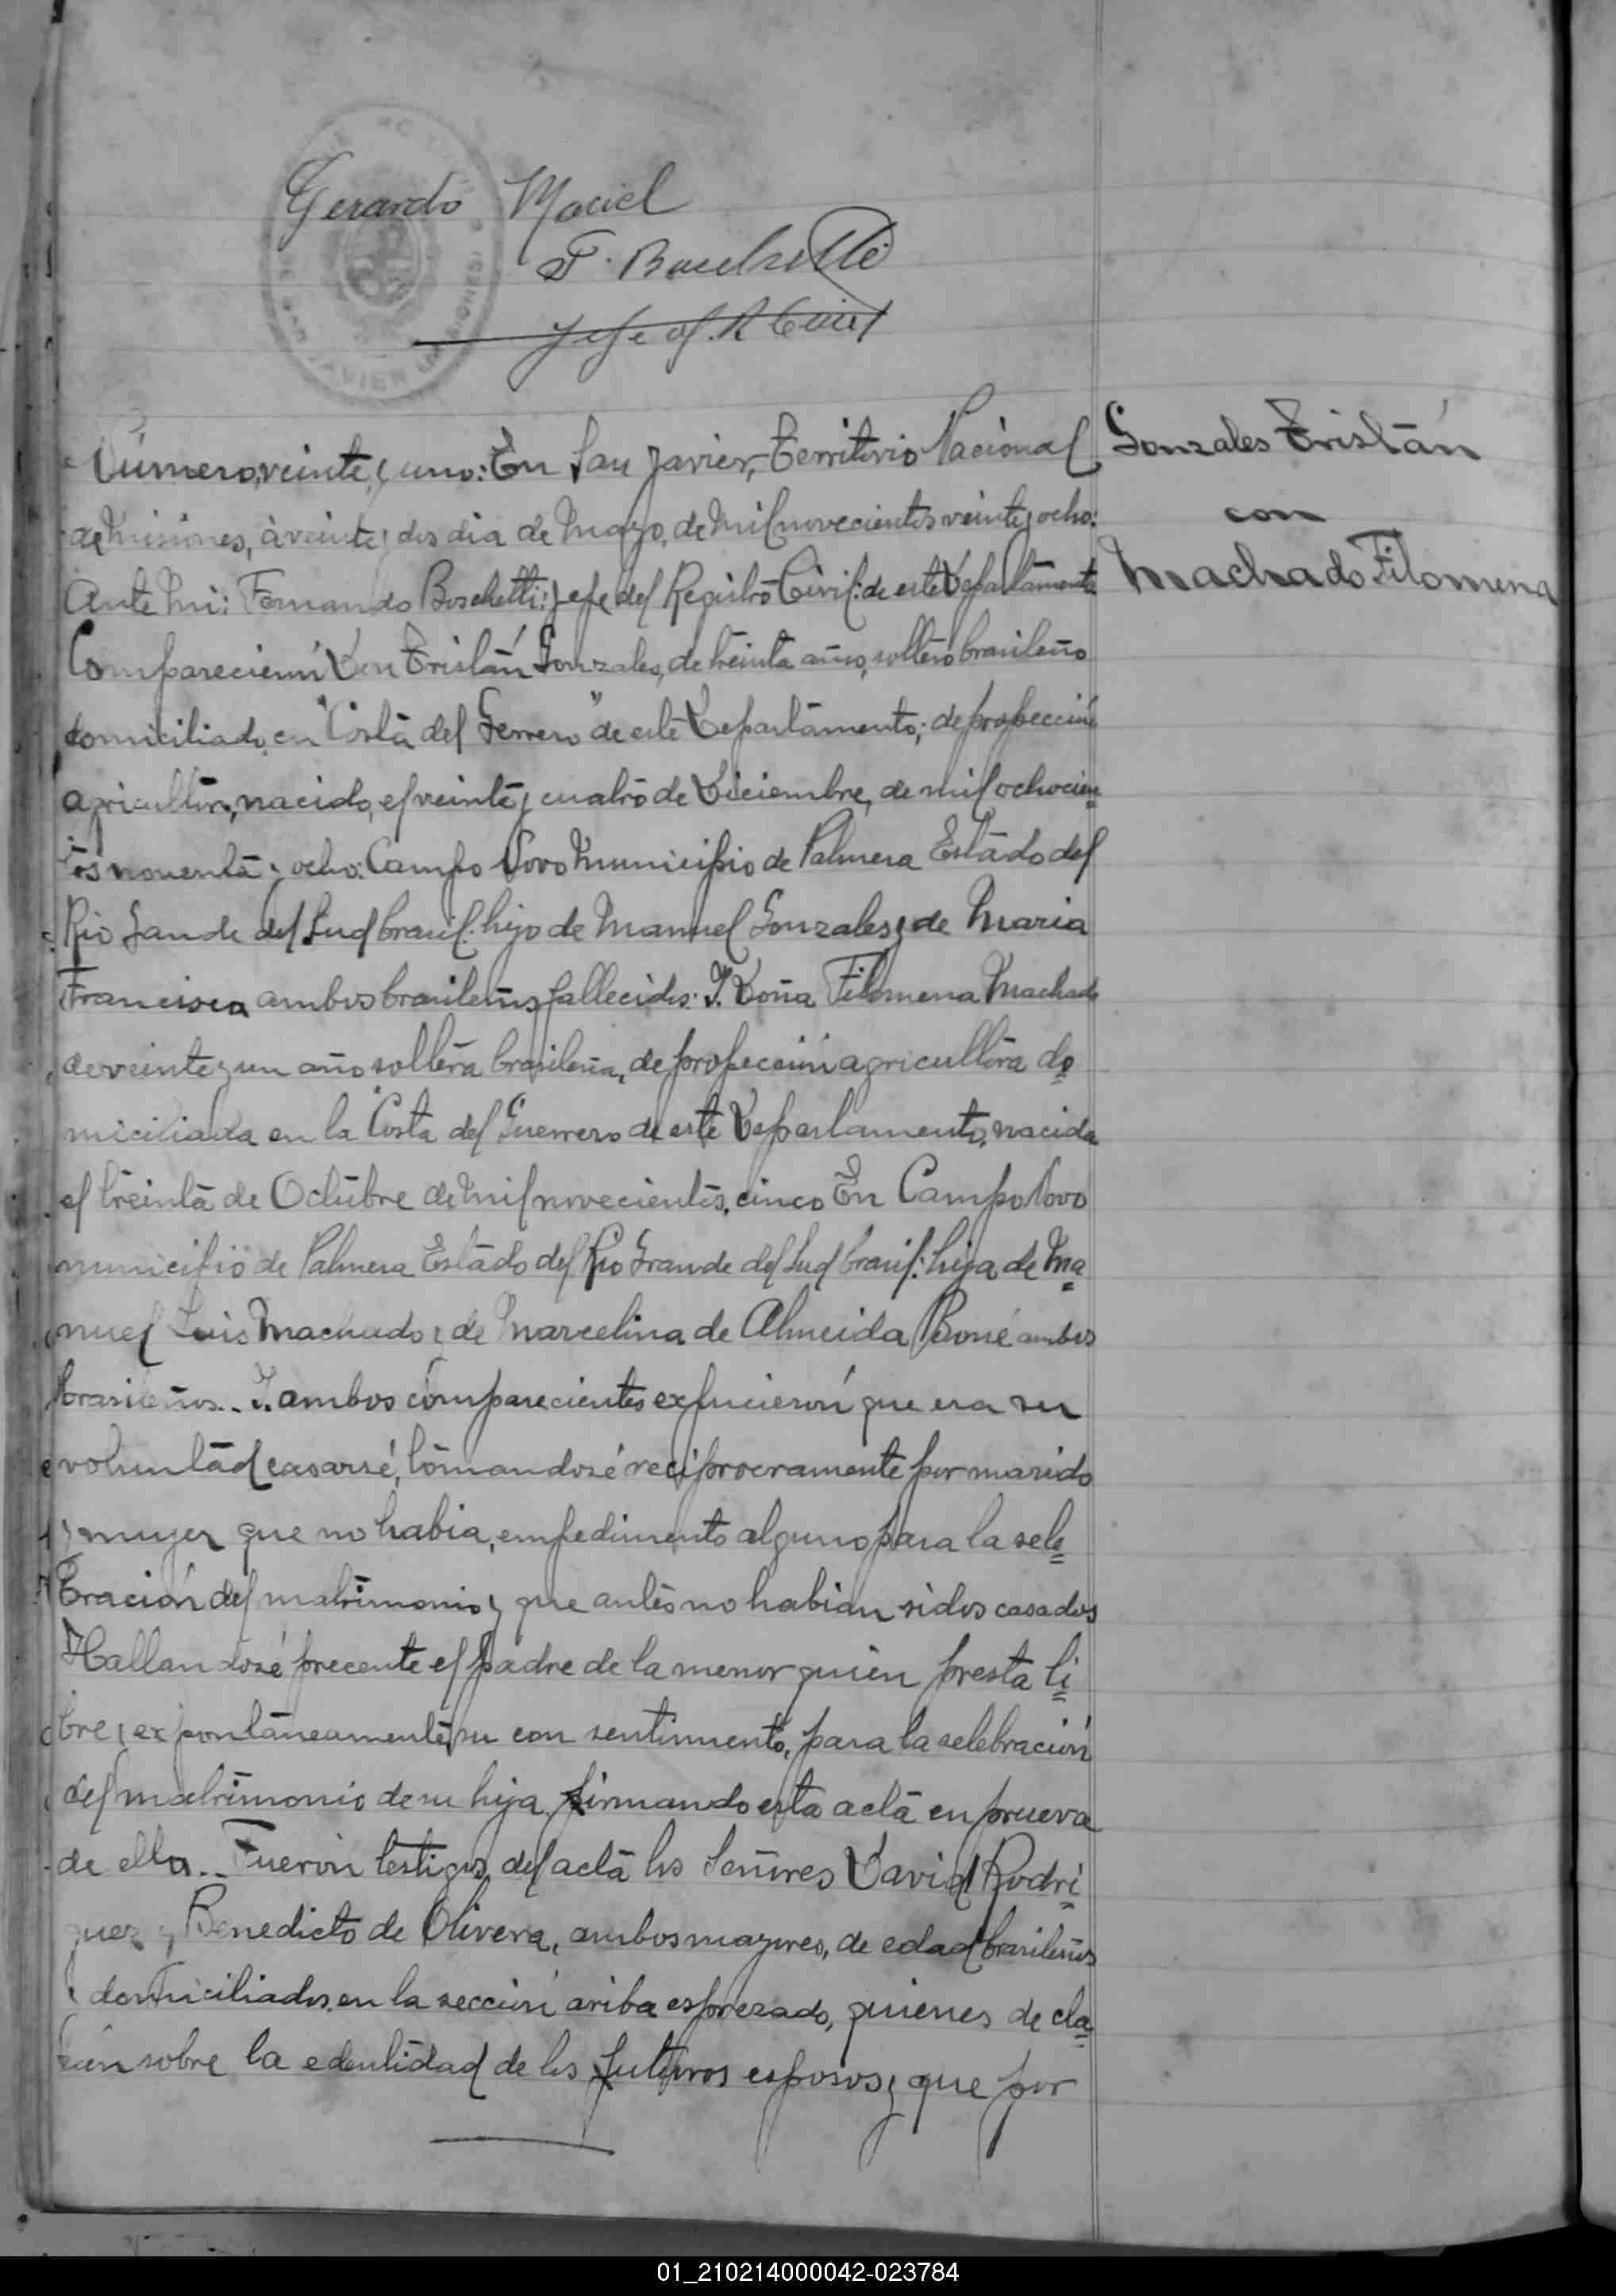 Gerardo Maciel
F. Boschetti
Jefe of. R Civil
SAN JAVIER (MISIONES)
Número, veinte y uno: En San Javier, Territorio Nacional
de Misiones, à veinte y dos dia de Mayo, de Mil novecientos veinte y ocho:
Ante Mi: Fernando Boschetti: Jefe del Registro Civil: de este Departamento
Comparecierón Don Tristán Gonzales, de treinta años, soltero brasileño
domiciliado, en "Costa del Gerrero" de este Departamento; de profección
agricultor, nacido, el veinte y cuatro de Diciembre, de mil ochocien=
tos noventa y ocho: Campo Novo Municipio de Palmera Estado del
Rio Gande del Sud brasil: hijo de Manuel Gonzales y de Maria
Francisca ambos brasileños fallecidos: Y. Doña Filomena Machado
de veinte y un año soltera brasileña, de profección agricultora do=
miciliada en la Costa del Guerrero de este Departamento, nacida
el treinta de Octubre de Mil novecientos, cinco En Campo Novo
municipio de Palmera Estado del Rio Grande del Sud brasil: hija de Ma=
nuel Luis Machado y de Marcelina de Almeida Boné ambos
brasileños.. Y. ambos comparecientes expucierón que era su
voluntad casarsé, tomandosé reciprocramente por marido
y muger que no habia, empedimento alguno para la sele=
bración del matrimonio y que antes no habian sidos casados
Hallandosé precente el padre de la menor quien presta li=
bre y expontáneamente, su con sentimento, para la selebración
del matrimonio de su hija, firmando esta acta en prueva
de ella.. Fuerón testigos, del acta los Señores David Rodri=
guez y Benedicto de Olivera, ambos mayores, de edad brasileños
y domiciliados, en la sección ariba esprezado, quienes de cla=
rán sobre la edentidad de los futuros esposos y que por
Gonzales Tristán
con
Machado Filomena
01_210214000042-023784